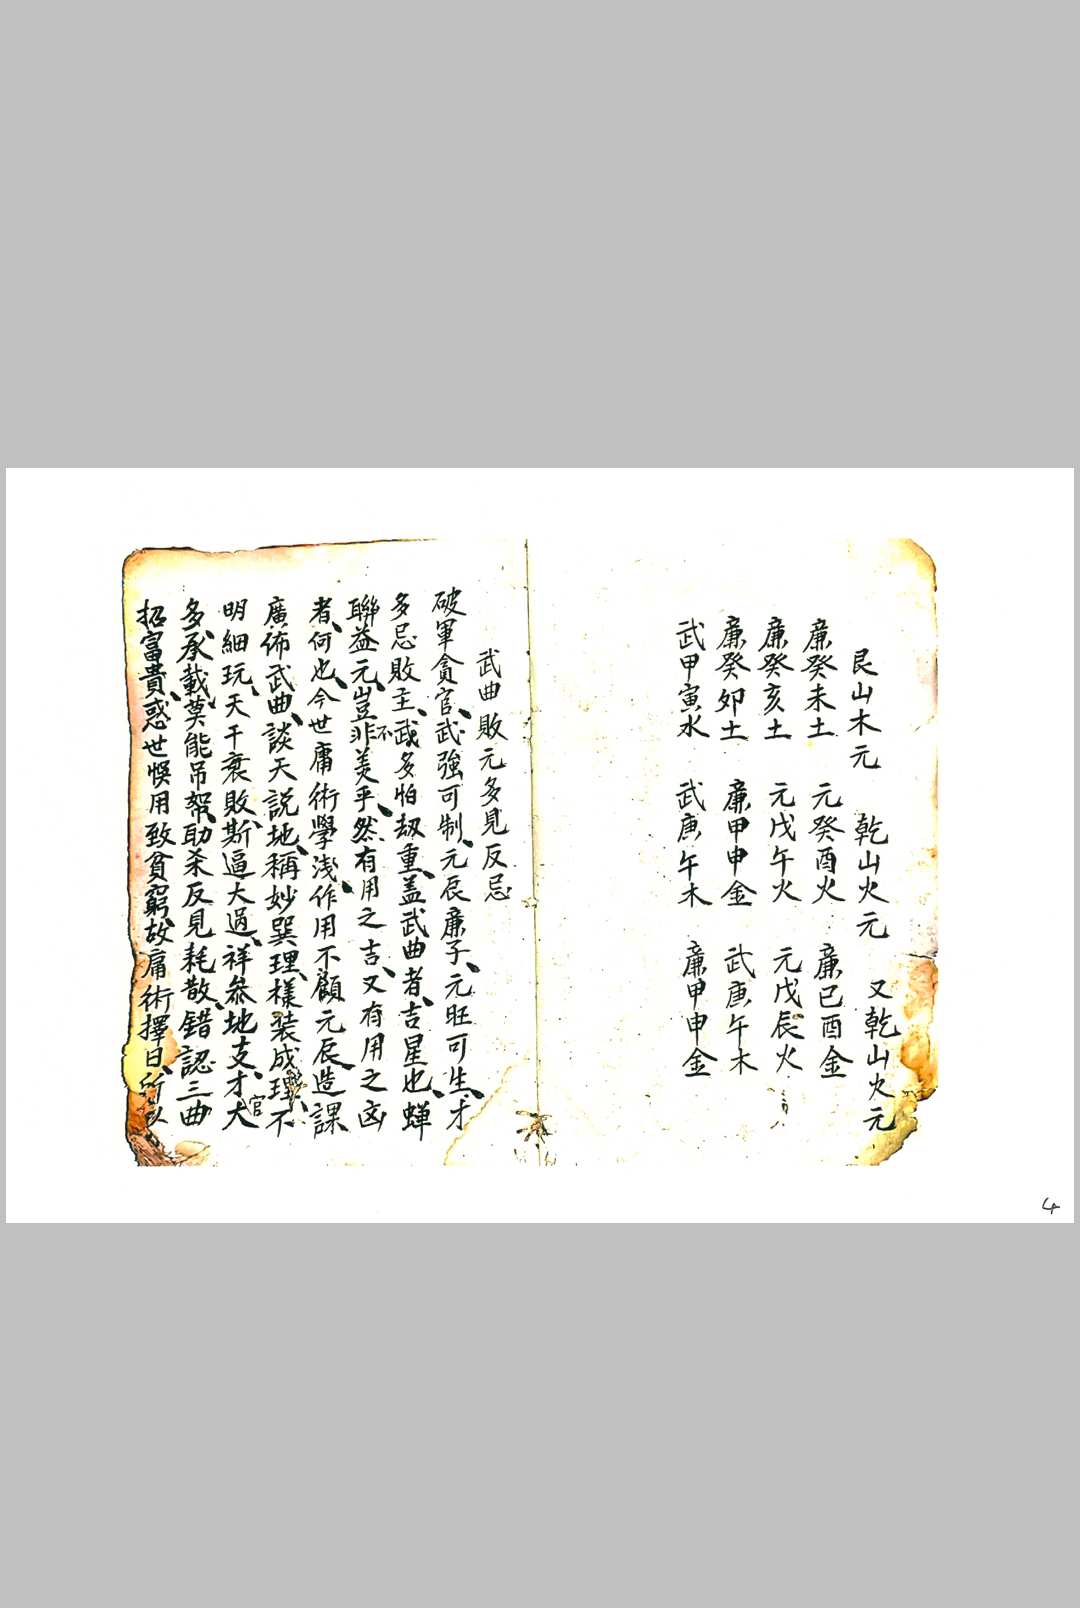 艮山木元　乾山火元　又乾山火元
廉癸未土　元癸酉火　廉已酉金
廉癸亥土　元戊午火　元戊辰火
廉癸卯土　廉甲申金　武庚午木
武甲寅水　武庚午木　廉甲申金
武曲敗元多見反忌
破軍貪官、武強可制、元辰廉子、元旺可生、才
多忌敗主、武多怕刼重、盖武曲者、吉星也、蟬
聯益元、豈非不美乎、然有用之吉、又有用之凶
者、何也、今世庸術學浅、作用不顧元辰、造課
廣佈武曲、談天説地、稱妙巽理、樣装成理、不
明細玩、天干衰敗、斯逼大過、祥叅地支、才官大
多、承載莫能吊帮、助杀反見耗散、錯認三曲
招富貴、惑世悞用致貧窮、故庸術擇日、所以
4